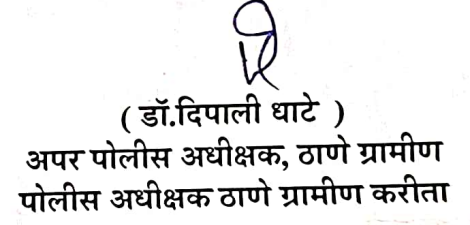 ( डॉ.दिपाली धाटे )
अपर पोलीस अधीक्षक, ठाणे ग्रामीण
पोलीस अधीक्षक ठाणे ग्रामीण करीता